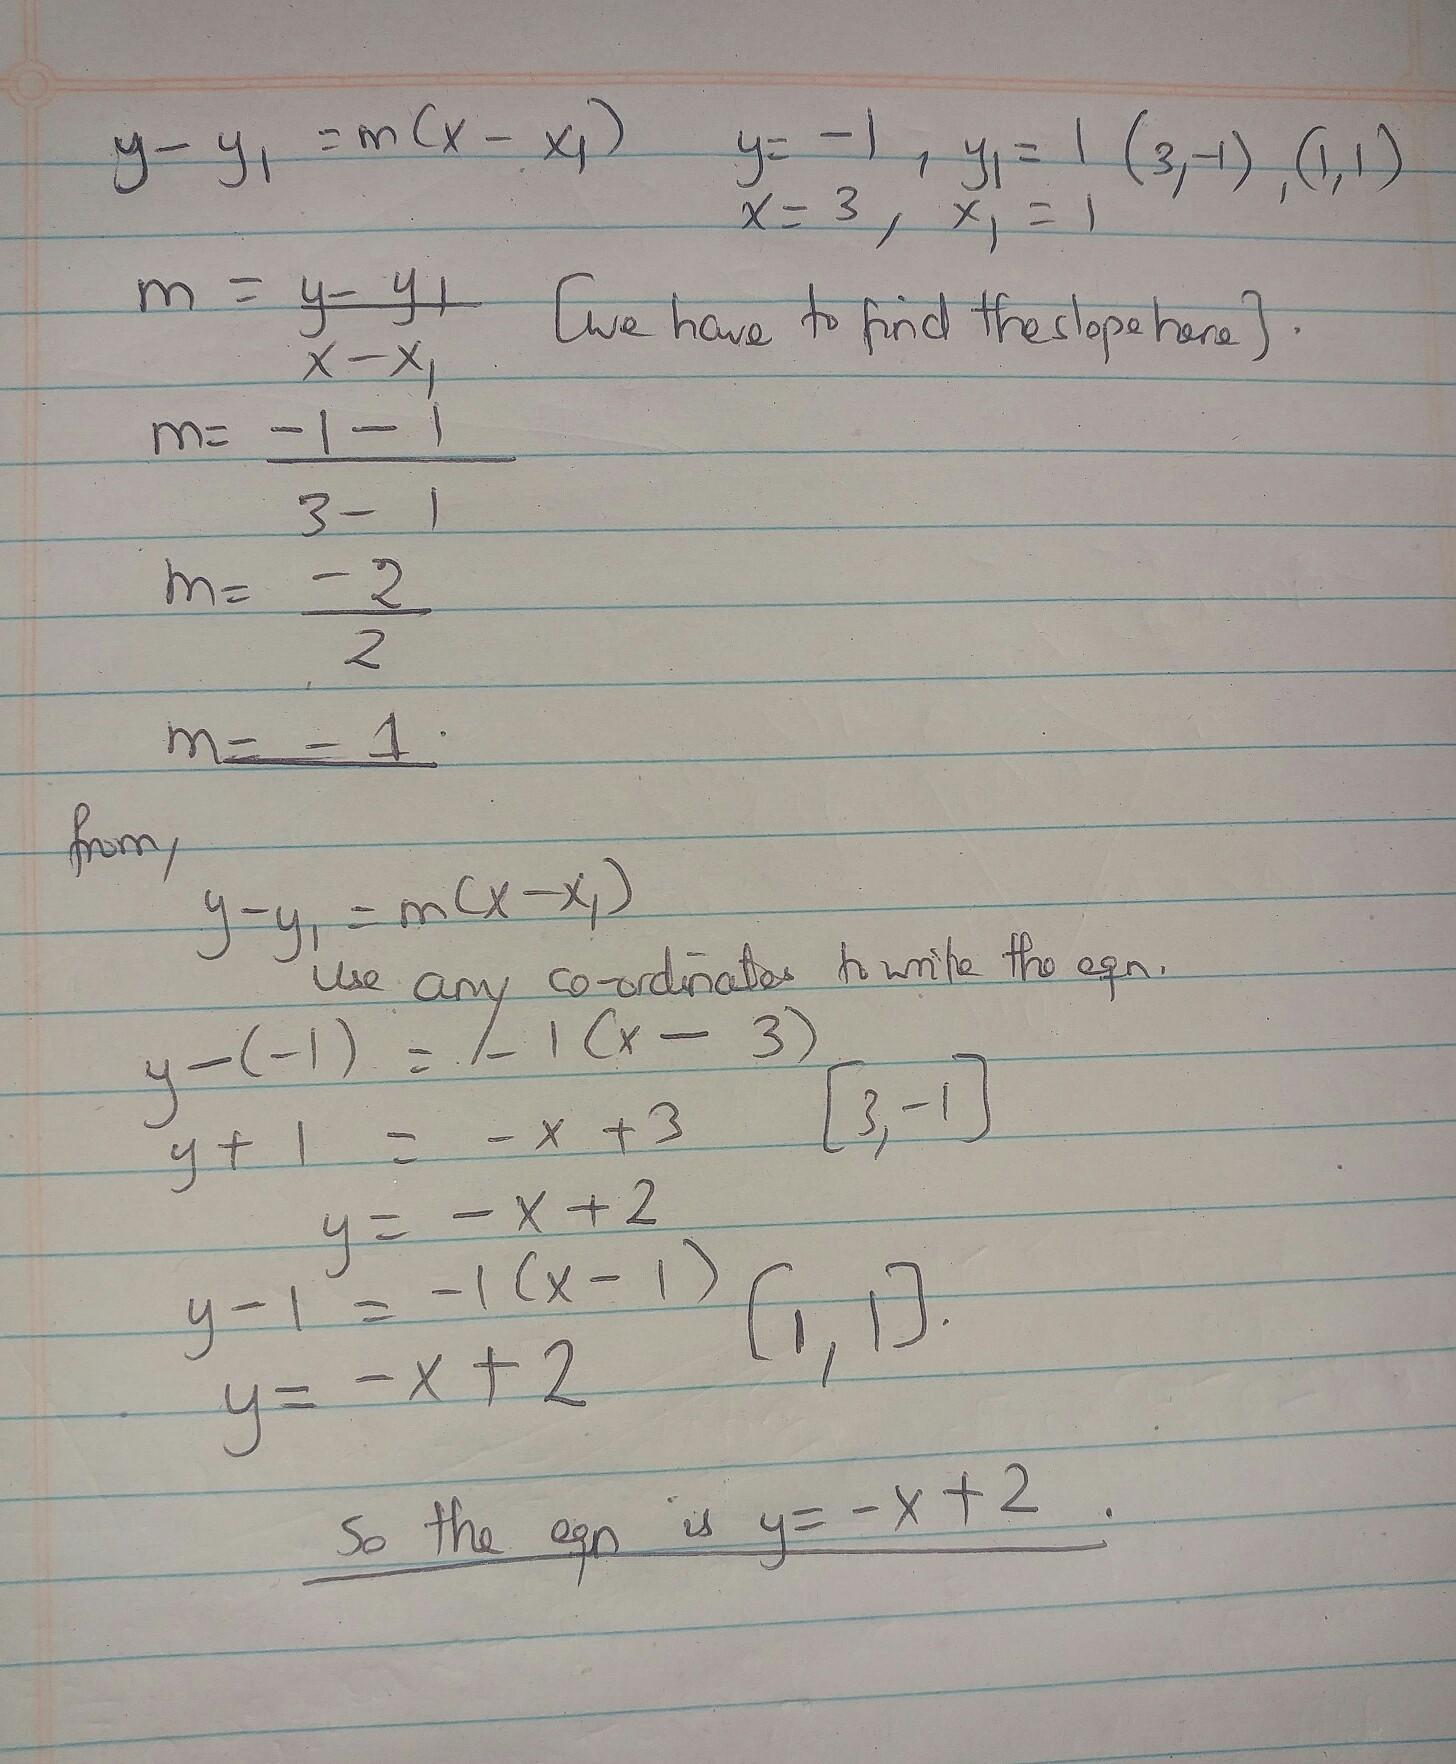 y - y₁ = m(x - x₁) y = -1, y₁ = 1 (3,-1), (1,1)
x = 3, x₁ = 1
m = y - y₁ [we have to find the slope here].
x - x₁
m = -1 - 1
3 - 1
m = -2
2
m = -1.
from,
y - y₁ = m(x - x₁)
Use any co-ordinates to write the eqn.
y - (-1) = -1(x - 3)
y + 1 = -x + 3 [3,-1]
y = -x + 2
y - 1 = -1(x - 1) [1,1].
y = -x + 2
So the eqn is y = -x + 2.